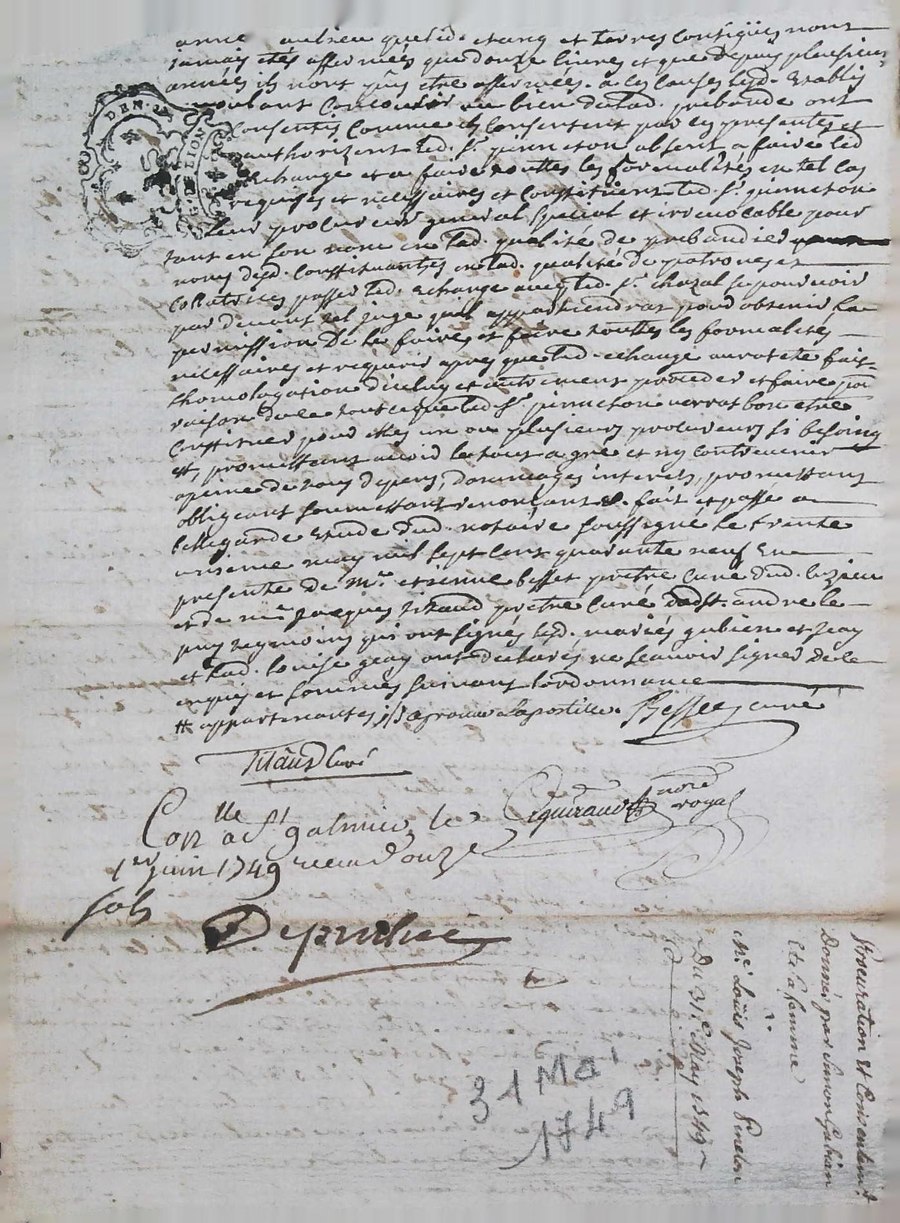 année au lieu que led. etang et terres contigües nont
jamais étés affermées que douze livres et que depuis plusieurs
années ils nont pûs etre affermées. a ces causes lesd. Etablis
voulant concourir au bien de lad. prebande ont
consentis comme ils consentent par ces presentes et
authorizent led. Sr. absent a faire led
Echange et a faire touttes les formalités en tel cas
requises et necessaires et constituent led. Sr.
leur procureur general special et irrevocable pour
tant en son nom en lad. qualité de prebandier
noms desd. constituantes en lad. qualité de patrones et
collatrices passer led. Echange avec led. Sr. chazal se pourvoir
par devant tel juge quil appartiendrat pour obtenir la
permission de le faire et faire touttes les formalités
necessaires et requerir apres que led. echange aurat eté fait
lhomologation diceluy et autrement proceder et faire pour
raison de ce tout ce que led. Sr. verrat bon etre
constituer pour elles un ou plusieurs procureurs si besoing
est, promettant avoir le tout a gré et ny contrevenir
a peine de tous depens, dommages interets, promettant
obligeant soumettant renonçant &. fait et passé a
bellegarde Etude dud. notaire soussigné le trente
unieme may mil sept cent quarante neuf En
presence de Mre. etienne besset prêtre curé dud. lieu
et de mre jacques ritaud prêtre curé dudt. andré le
puy temoins qui ont signés lesd. mariés gubien et
et lad. Louise ont declarés ne scavoir signer de ce
enquis et sommés suivant lordonnance
# appartenantes aprouvé lapostille. Besset curé
Ritaud curé
Conlle a St galmier le
1er juin 1749 receu douze
sols
notre
royal
31 Mai
1749
Procuration et Consentemt.
Donné par Simon Gubian
Et la femme
à
Mr. Loüis Joseph
Du 31e May 1749